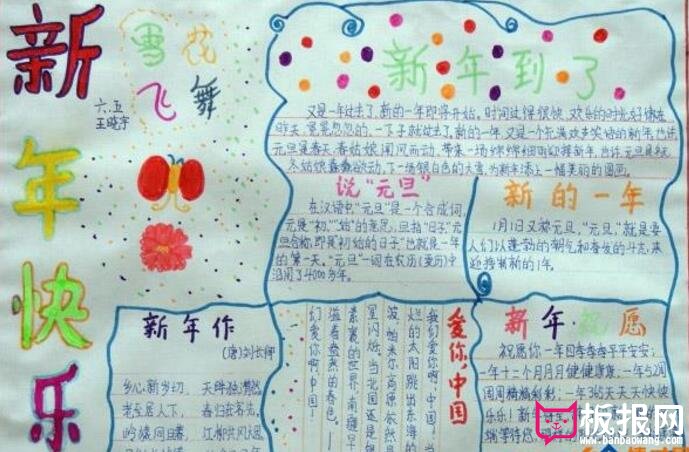 新年快乐
雪花
飞舞
六.五
王晓宇
新年到了
又是一年过去了,新的一年即将开始。时间过得很快,欢乐的时光好像在
昨天,匆匆忽忽的,一下子就过去了,新的一年,又是一个充满欢声笑语的新年,也许,
元旦是春天,春姑娘闻风而动,带来一场绵绵细雨迎接新年,也许,元旦是冬天
冬姑娘蠢蠢欲动,下一场银白色的大雪,为新年添上一幅美丽的图画。
说“元旦”
在汉语中“元旦”是一个合成词,
元是“初”、“始”的意思,旦指“日子”元
旦合称,即是“初始的日子”也就是一年
的第一天。“元旦”一词在农历(夏历)中
沿用了4000多年。
新的一年
1月1日又称元旦,“元旦”,就是要
人们以蓬勃的朝气和奋发的斗志,来
迎接崭新的1年。
新年作
(唐)刘长卿
乡心新岁切,天畔独潸然。
老至居人下,春归在客先。
岭猿同旦暮,江柳共风烟。
爱你,中国
我们爱你,中国!当
灿烂的太阳跳出东海的
波,帕米尔高原依然是
星闪烁。当北国还是银
素裹的世界,南疆早
溢着盎然的春色
们爱你啊,中国!
新年·祝愿
祝愿你一年四季季季平平安安;
一年十二个月月月健健康康;一年52周
周周精精彩彩;一年365天天天快快
乐乐!新年
端等待您,
板报网
www.banbaowang.com